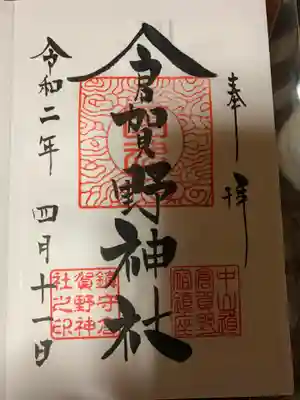 奉拝
倉賀野神社
中山道
倉賀野
宿鎮座
鎮守倉
賀野神
社之印
令和二年 四月十一日